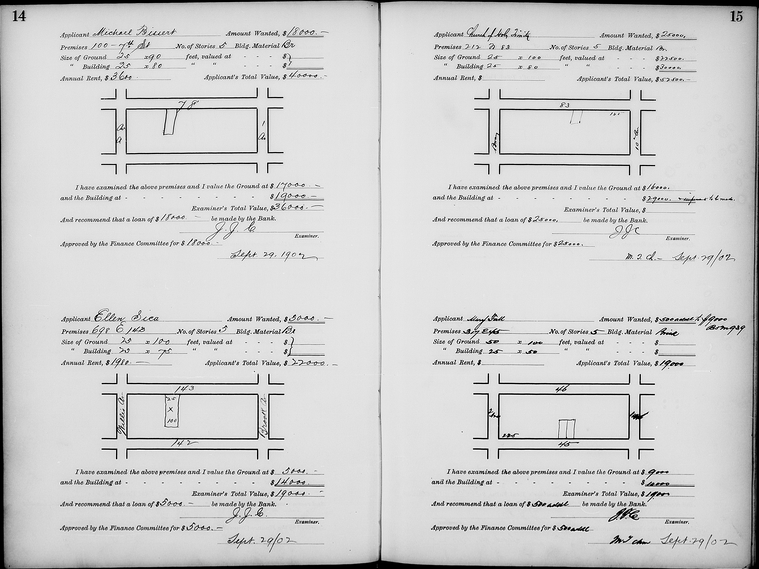 14
Applicant Michael Amount Wanted, $18000.—
Premises 100-7th St No. of Stories 5 Bldg. Material Br
Size of Ground 25 x 90 feet, valued at - - - $
" Building 25 x 80 " " - - - $
Annual Rent, $3600 Applicant's Total Value, $40000.—
78
I have examined the above premises and I value the Ground at $17000.—
and the Building at - - - - - - - - $19000.—
Examiner's Total Value, $36000.—
And recommend that a loan of $18000.— be made by the Bank.
J. J. C
Examiner.
Approved by the Finance Committee for $18000.—
Sept. 29, 1902
Applicant Ellen Amount Wanted, $5000.—
Premises 698 E 143 No. of Stories 5 Bldg. Material Br
Size of Ground 25 x 100 feet, valued at - - - $
" Building 25 x 75 " " - - - $
Annual Rent, $1980.— Applicant's Total Value, $22000.—
143
25
x
100
Willis A
Brook A
142
I have examined the above premises and I value the Ground at $5000.—
and the Building at - - - - - - - - $14000.—
Examiner's Total Value, $19000.—
And recommend that a loan of $5000.— be made by the Bank.
J. J. C.
Examiner.
Approved by the Finance Committee for $5000.—
Sept. 29/02
15
Applicant Church of Holy Trinity Amount Wanted, $25000.
Premises 212 W 83 No. of Stories 5 Bldg. Material Br.
Size of Ground 25 x 100 feet, valued at - - - $22500.—
" Building 25 x 80 " " - - - $30000.—
Annual Rent, $ Applicant's Total Value, $52500.—
83
Bway
10th A
I have examined the above premises and I value the Ground at $16000.
and the Building at - - - - - - - - $29000.
Examiner's Total Value, $
And recommend that a loan of $25000. be made by the Bank.
J. J. C
Examiner.
Approved by the Finance Committee for $25000.
Sept. 29/02
Applicant Mary Amount Wanted, $5000 addl to $9000
Premises No. of Stories 5 Bldg. Material
Size of Ground 50 x 100 feet, valued at - - - $
" Building 25 x 50 " " - - - $
Annual Rent, $ Applicant's Total Value, $19000
46
45
I have examined the above premises and I value the Ground at $9000
and the Building at - - - - - - - - $
Examiner's Total Value, $19000
And recommend that a loan of $5000 addl be made by the Bank.
Examiner.
Approved by the Finance Committee for $5000 addl
Sept. 29/02